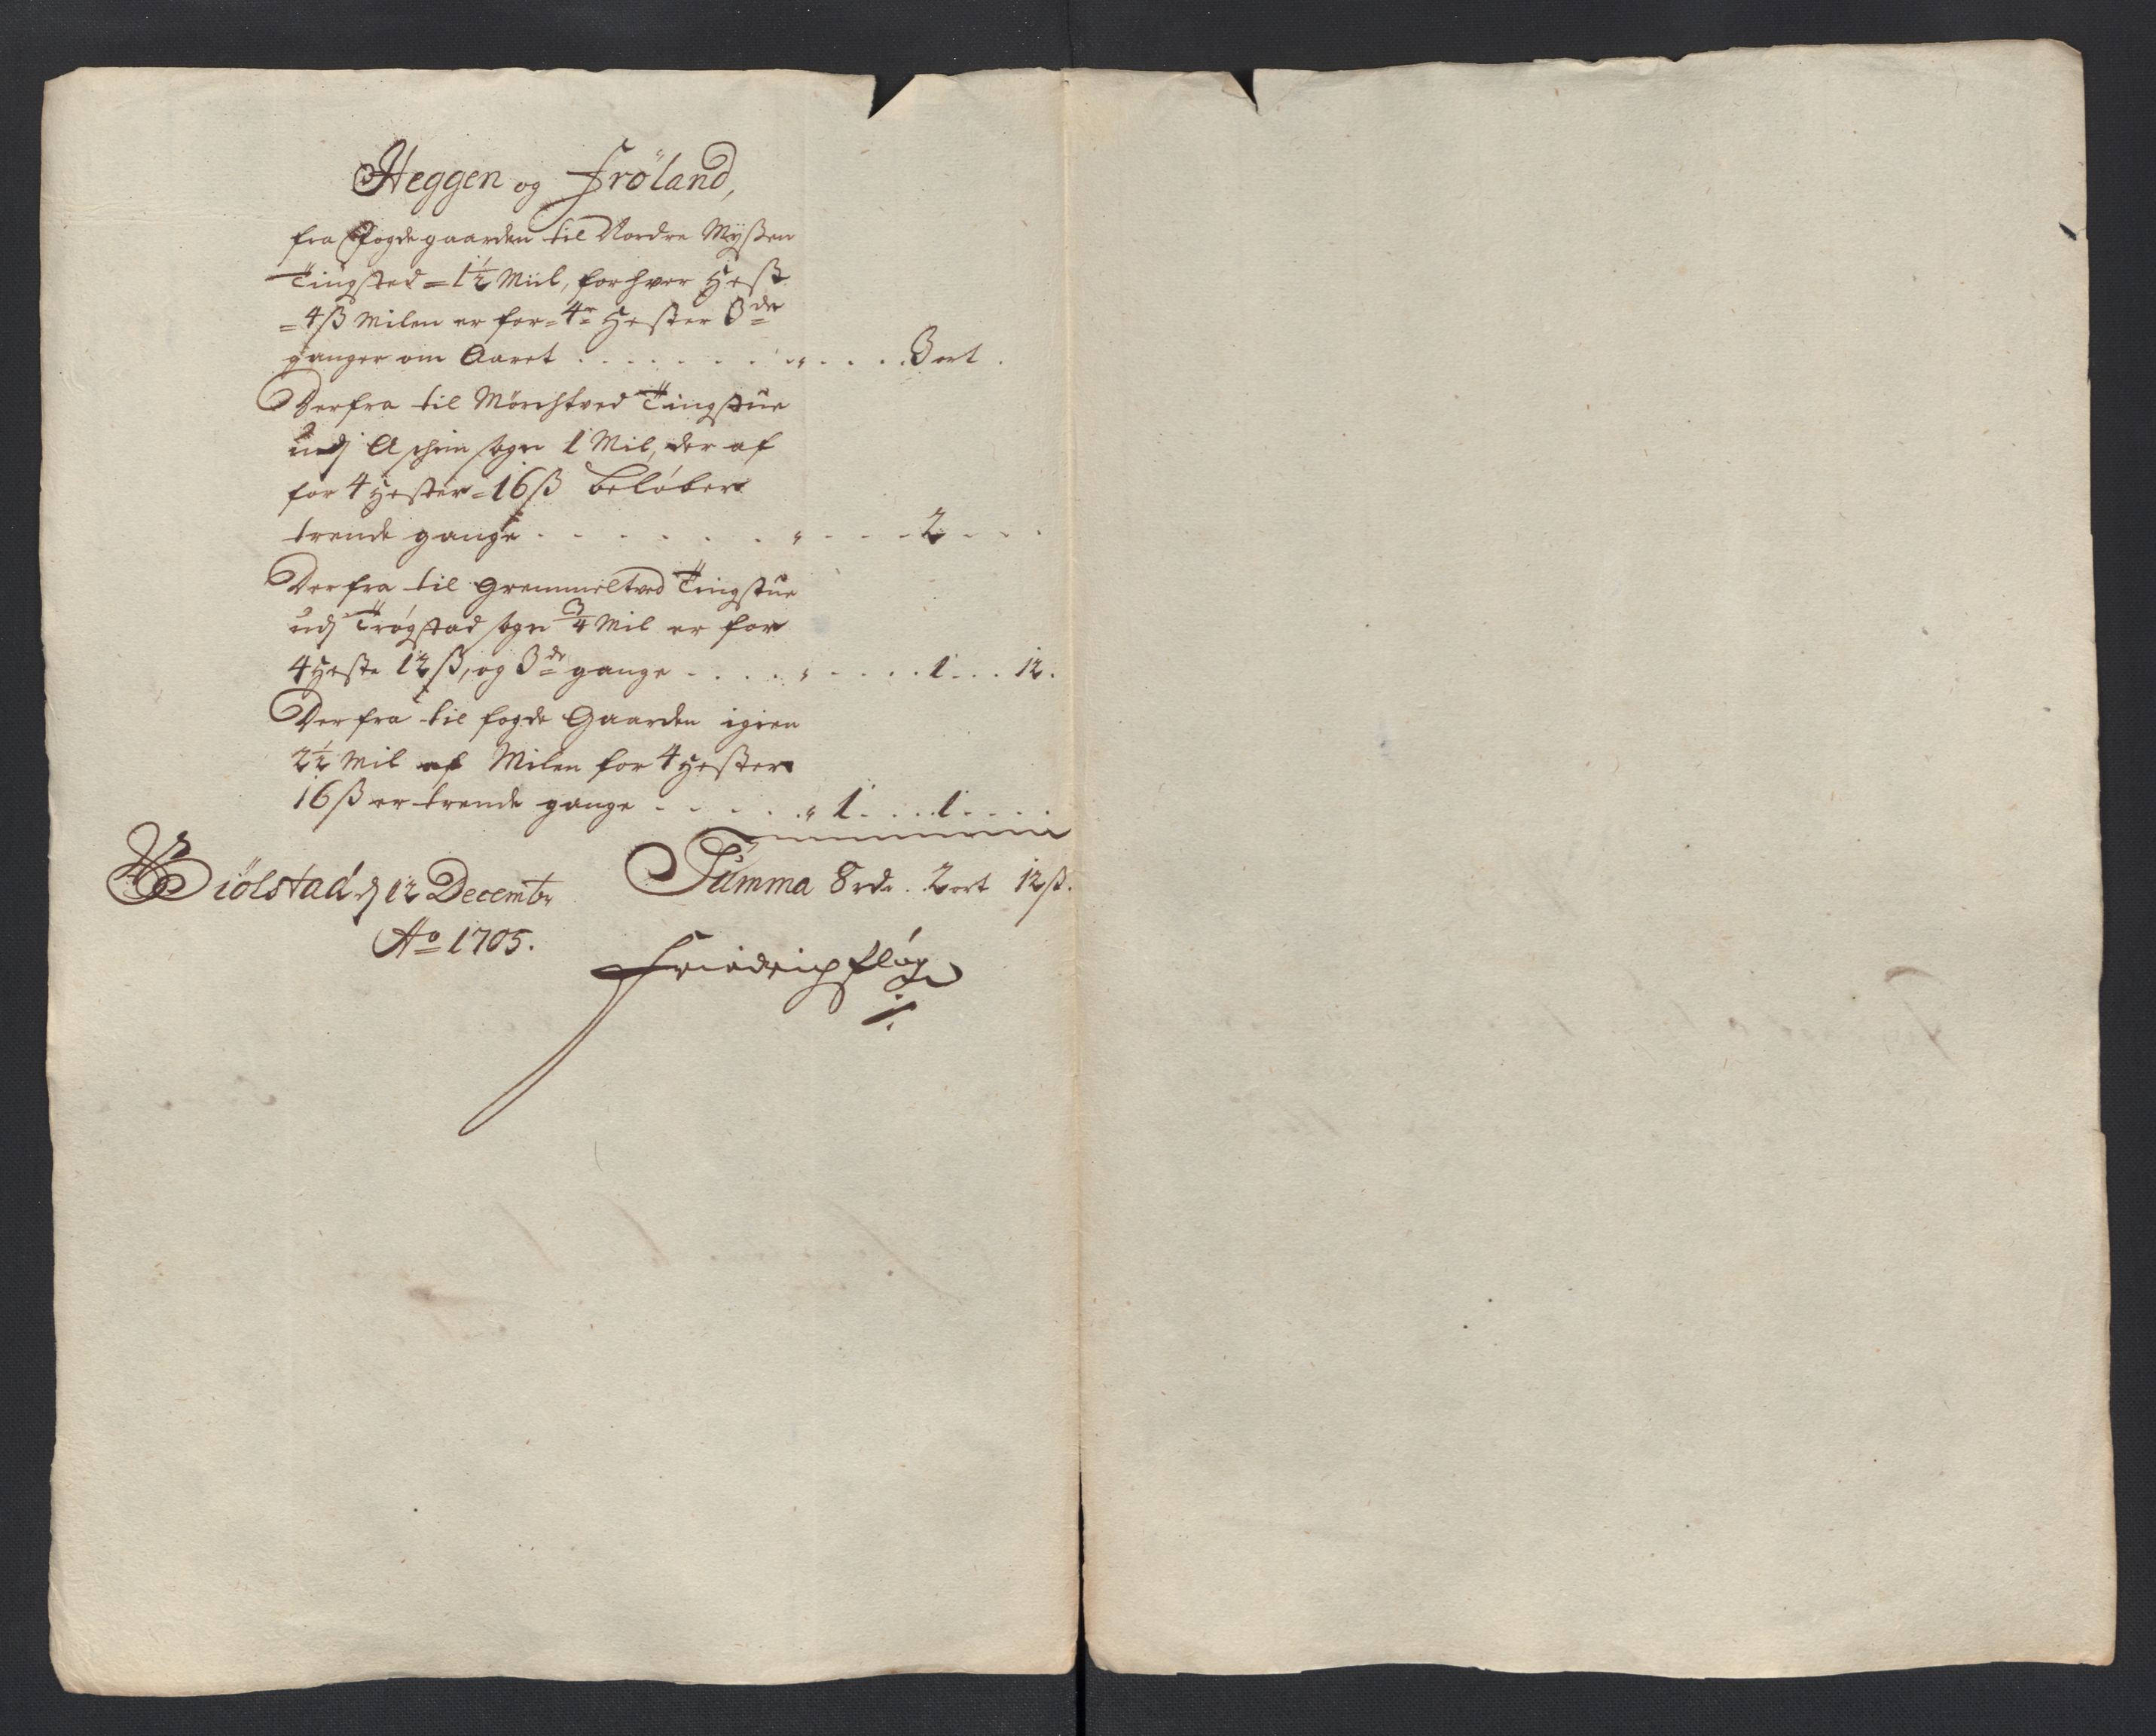 Heggen og Fröland,
fra fogdegaarden til Nordre Mÿßen
Tingsted = 1½ Miil, for hver Hest
= 4 ß Milen er for = 4re Hester 3de
ganger om Aaret . . . . . . . . „ . . . . 3 ort .
Derfra til Mörchtved Tingstue
udj Aschim sogn 1 Mil, der af
for 4 Hester = 16 ß beløber
trende gange . . . . . . . „ . . . 2 . . .
Der fra til Gremmeltved Tingstue
udj Trøgstad sogn ¾ Mil er for
4 Heste 12 ß, og 3de gange . . . . „ . . . . 1 . . . 12.
Der fra til fogde Gaarden igien
2½ Mil af Milen for 4 Hester
16 ß er trende gange . . . . . „ 1 . . . 1 . . . .
Summa 8 rdr. 2 ort 12 ß.
Biölstad d 12 Decembr
Ao 1705.
Friedrich fløg